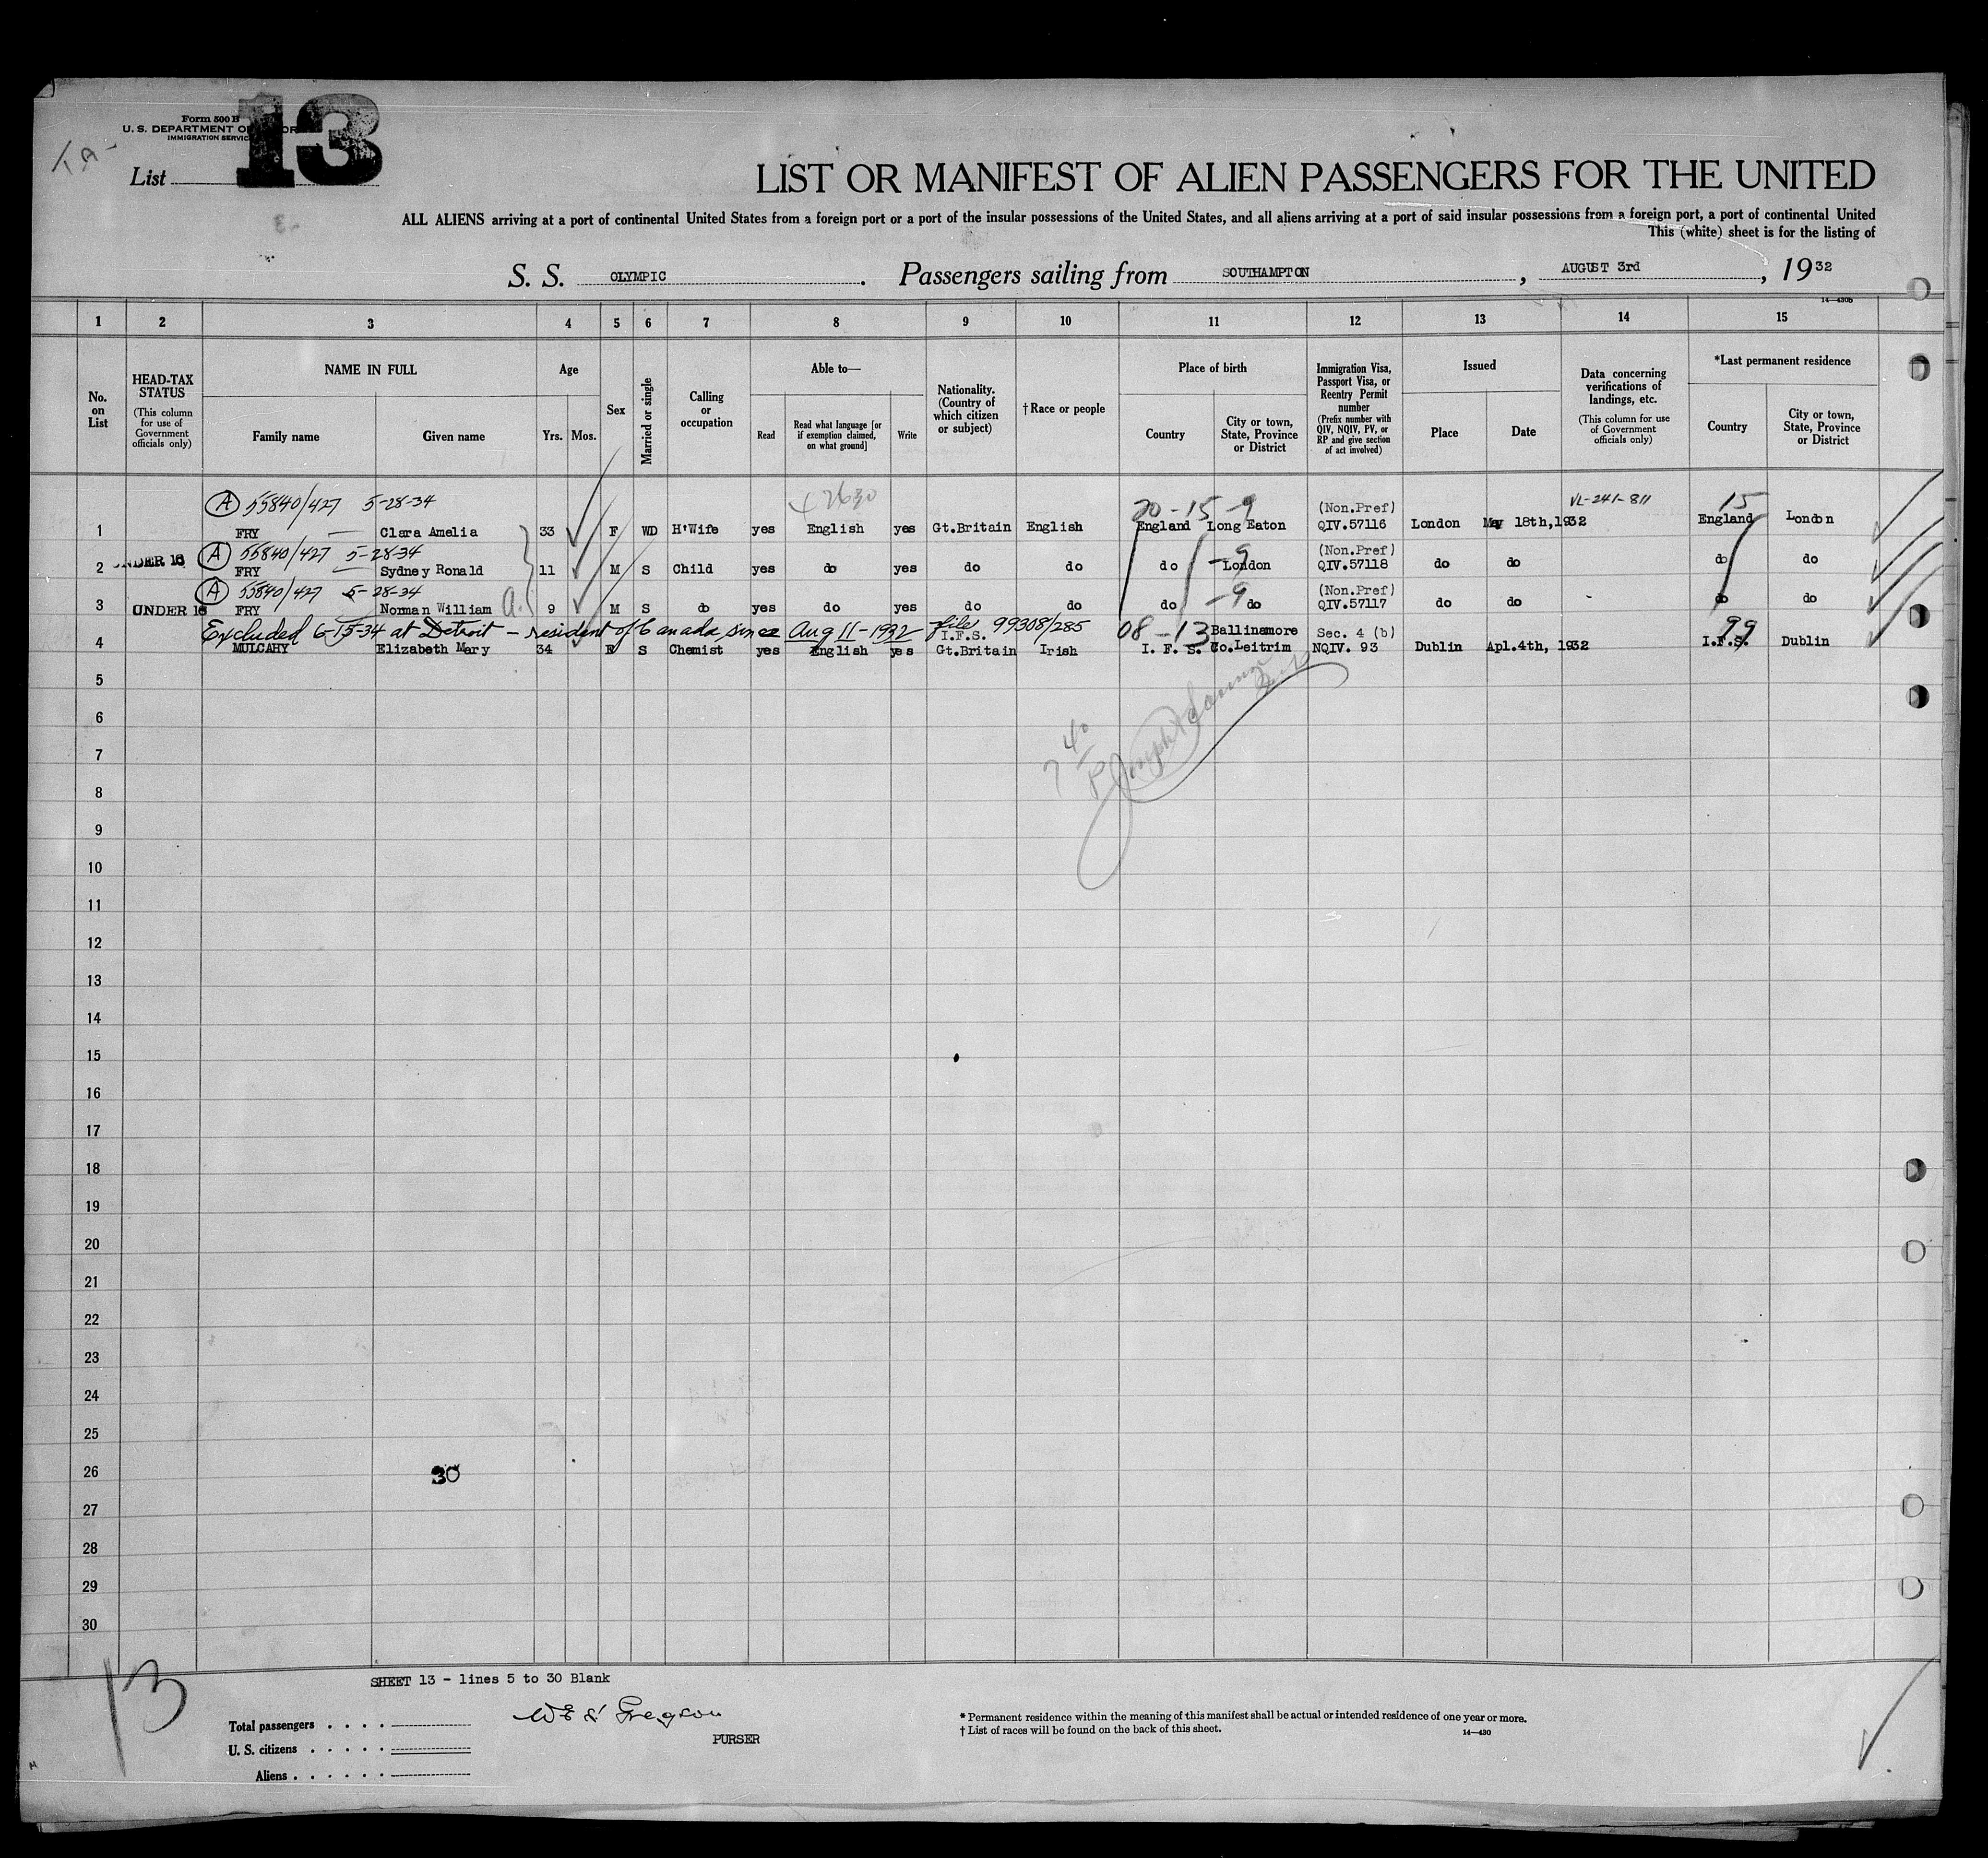 Form 500 B
U. S. DEPARTMENT OF LABOR
IMMIGRATION SERVICE
List 13
LIST OR MANIFEST OF ALIEN PASSENGERS FOR THE UNITED
ALL ALIENS arriving at a port of continental United States from a foreign port or a port of the insular possessions of the United States, and all aliens arriving at a port of said insular possessions from a foreign port, a port of continental United
This (white) sheet is for the listing of
S. S. OLYMPIC. Passengers sailing from SOUTHAMPTON, AUGUST 3rd, 1932
14—430B
1 2 3 4 5 6 7 8 9 10 11 12 13 14 15
No. on List
HEAD-TAX STATUS
(This column for use of Government officials only)
NAME IN FULL
Family name
Given name
Age
Yrs. Mos.
Sex
Married or single
Calling or occupation
Able to—
Read
Read what language [or if exemption claimed, on what ground]
Write
Nationality. (Country of which citizen or subject)
†Race or people
Place of birth
Country
City or town, State, Province or District
Immigration Visa, Passport Visa, or Reentry Permit number
(Prefix number with QIV, NQIV, PV, or RP and give section of act involved)
Issued
Place
Date
Data concerning verifications of landings, etc.
(This column for use of Government officials only)
*Last permanent residence
Country
City or town, State, Province or District
A 55840/427 5-28-34 2630 20-15-9 (Non.Pref) VL-241-811 15
1 FRY Clara Amelia 33 F WD H'Wife yes English yes Gt.Britain English England Long Eaton QIV.57116 London May 18th,1932 England London
A 55840/427 5-28-34 -9 (Non.Pref)
2 UNDER 16 FRY Sydney Ronald 11 M S Child yes do yes do do do London QIV.57118 do do do do
A 55840/427 5-28-34 -9 (Non.Pref)
3 UNDER 16 FRY Norman William a. 9 M S do yes do yes do do do do QIV.57117 do do do do
Excluded 6-15-34 at Detroit - resident of Canada since Aug 11-1932 file 99308/285 08-13 99
I.F.S. Ballinamore Sec. 4 (b)
4 MULCAHY Elizabeth Mary 34 F S Chemist yes English yes Gt.Britain Irish I. F. S. Co.Leitrim NQIV. 93 Dublin Apl.4th, 1932 I.F.S. Dublin
5
6
7
8
9
10
11
12
13
14
15
16
17
18
19
20
21
22
23
24
25
26 30
27
28
29
30
13
SHEET 13 - lines 5 to 30 Blank
Total passengers . . . .
U. S. citizens . . . . .
Aliens . . . . . .
Gregson
PURSER
* Permanent residence within the meaning of this manifest shall be actual or intended residence of one year or more.
† List of races will be found on the back of this sheet.
14—430